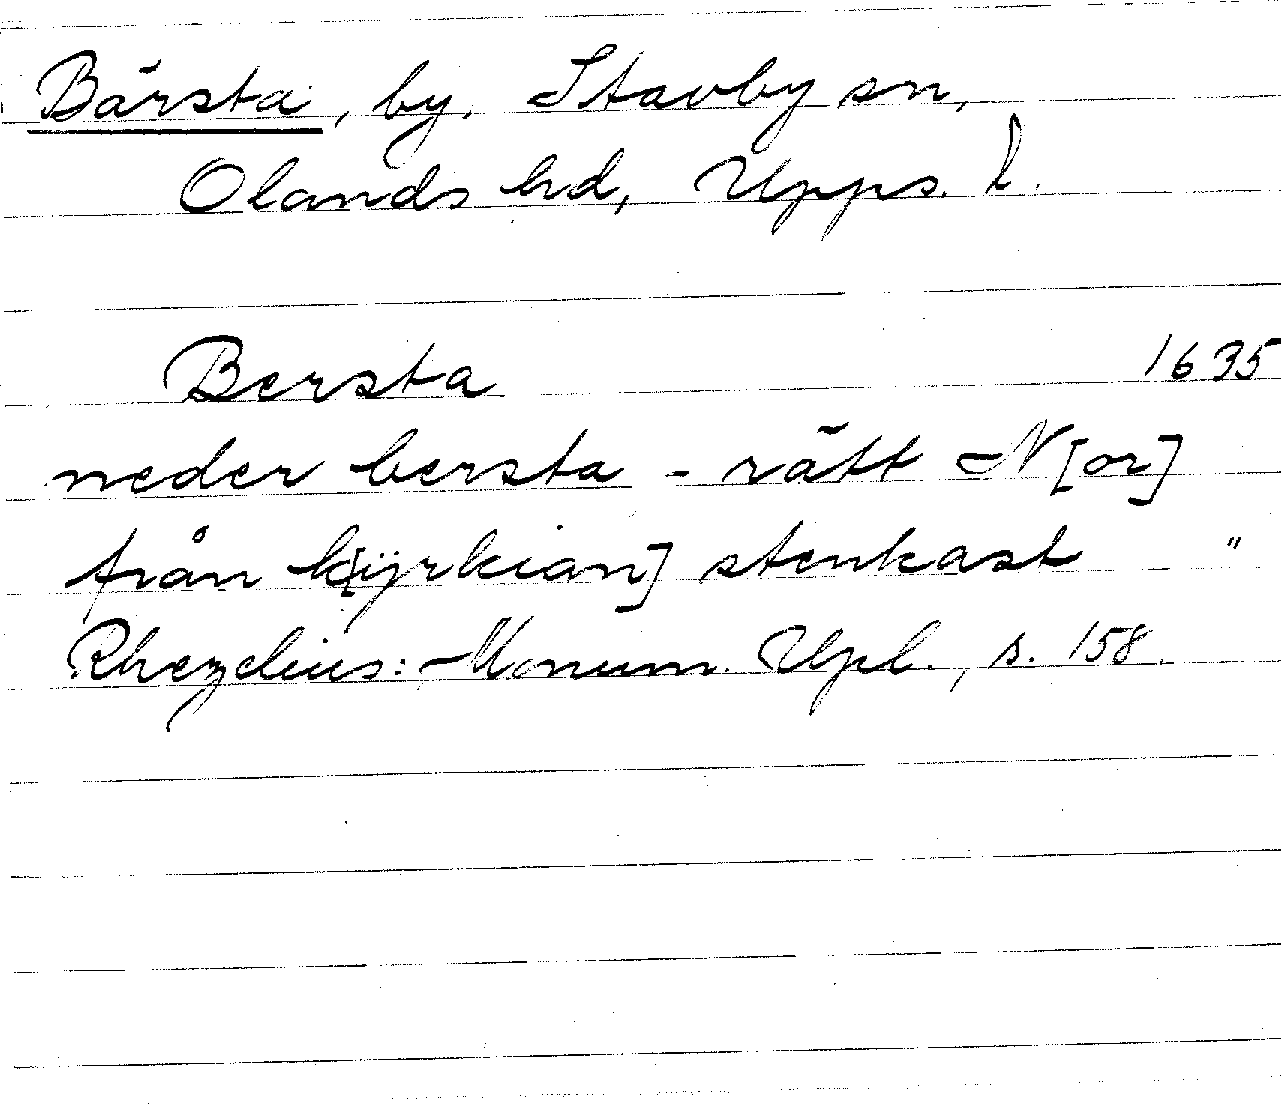 Bärsta, by, Stavby sn,
Olands hd, Upps. l.
Bersta 1635
neder bersta - rätt N[or]
från k[ÿrkian] stenkast "
Rhezelius: Monum. Upl., s. 158.